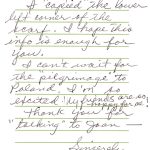 I copied the lower
left corner of the
scarf. I hope this
info is enough for
you.
I can't wait for
the pilgrimage to
Poland. I'm so
excited! My friends are so,
Thank you for
"talking" to Joan.